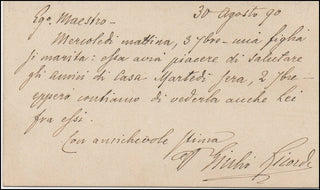 30 Agosto 90
Ego. Maestro -
Mercoledì mattina, 3 7bre - mia figlia
si marita: essa avrà piacere di salutare
gli amici di Casa Martedì sera, 2 7bre -
eppero contiamo di vederla anche Lei
fra essi.
Con amichevole stima
Giulio Ricordi